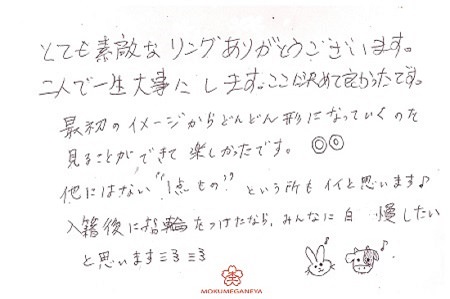 とても素敵なリングありがとうございます。
二人で一生大事にします。ここに決めて良かったです。
最初のイメージからどんどん形になっていくのを
見ることができて楽しかったです。◎◎
他にはない"1点もの"という所もイイと思います♪
入籍後に指輪をつけたなら、みんなに自慢したい
と思いますミヨミヨ
MOKUMEGANEYA